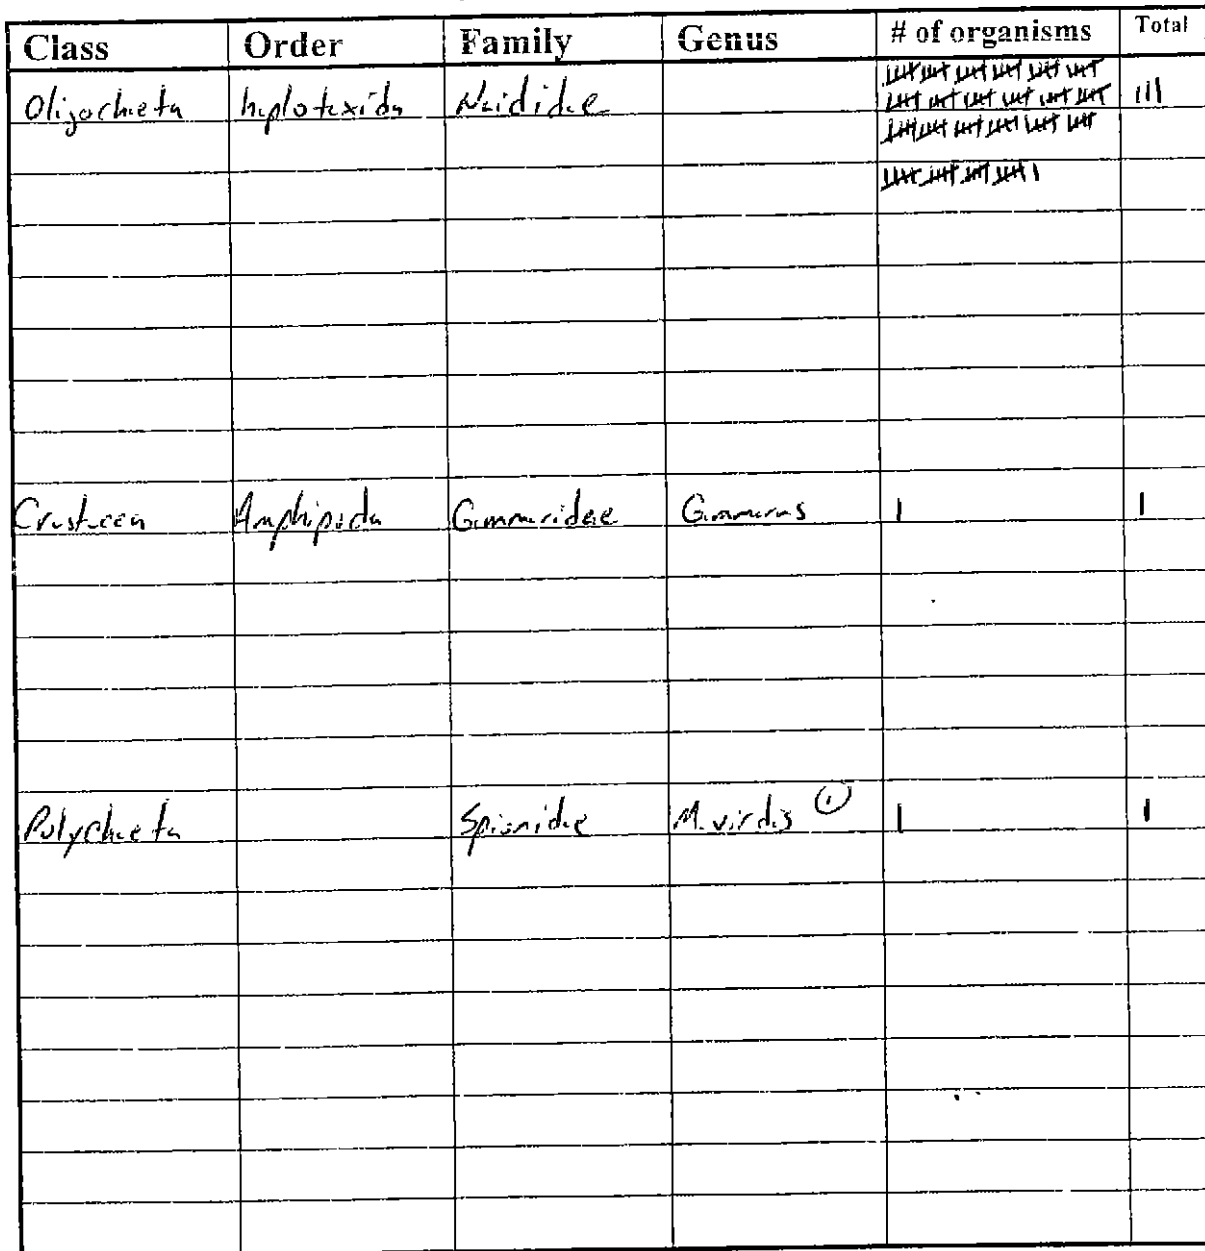 Class Order Family Genus # of organisms Total
Oligochaeta haplotaxida Naididae 111
Crustacea Amphipoda Gammaridae Gammarus 1 1
Polychaeta Spionidae M. virdis ① 1 1